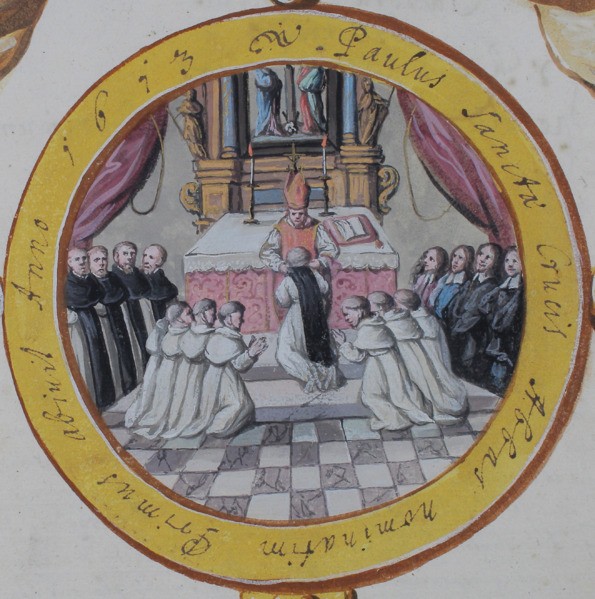 Paulus Sanctæ Crucis Abbas nominatim Primus Anno 1613